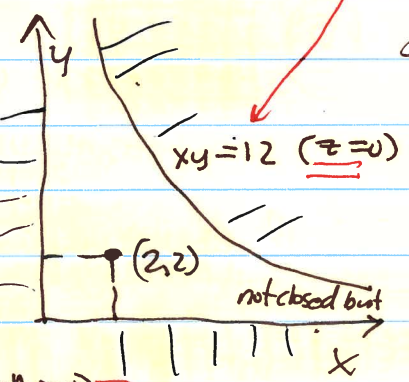 y
xy = 12 (z=0)
(2,2)
not closed but
x